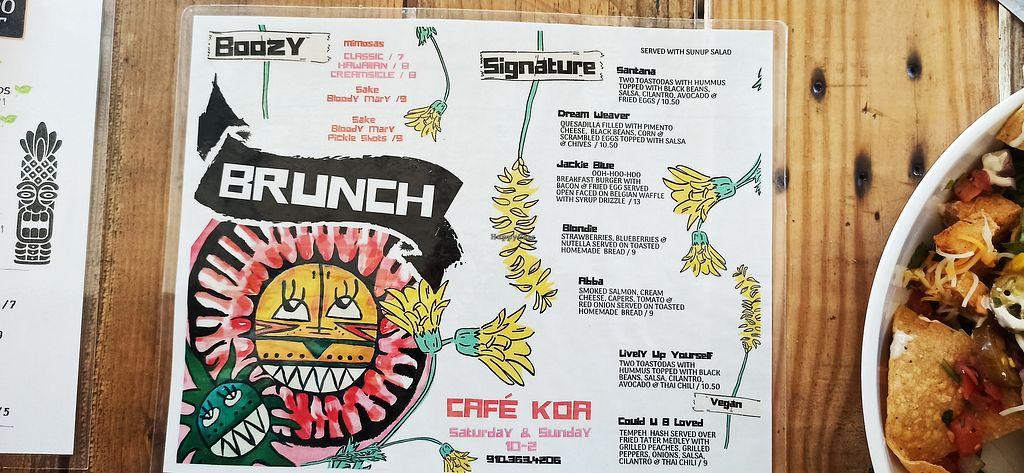 Boozy
mimosas
CLASSIC / 7
HAWAIIAN / 8
CREAMSICLE / 8
Sake
Bloody Mary /9
Sake
Bloody Mary
Pickle Shots /9
BRUNCH
CAFÉ KOA
Saturday & Sunday
10-2
910.363.4206
Signature
SERVED WITH SUNUP SALAD
Santana
TWO TOASTODAS WITH HUMMUS
TOPPED WITH BLACK BEANS,
SALSA, CILANTRO, AVOCADO &
FRIED EGGS / 10.50
Dream Weaver
QUESADILLA FILLED WITH PIMENTO
CHEESE, BLACK BEANS, CORN &
SCRAMBLED EGGS TOPPED WITH SALSA
& CHIVES / 10.50
Jackie Blue
OOH-HOO-HOO
BREAKFAST BURGER WITH
BACON & FRIED EGG SERVED
OPEN FACED ON BELGIAN WAFFLE
WITH SYRUP DRIZZLE / 13
Blondie
STRAWBERRIES, BLUEBERRIES &
NUTELLA SERVED ON TOASTED
HOMEMADE BREAD / 9
Abba
SMOKED SALMON, CREAM
CHEESE, CAPERS, TOMATO &
RED ONION SERVED ON TOASTED
HOMEMADE BREAD / 9
Lively Up Yourself
TWO TOASTODAS WITH
HUMMUS TOPPED WITH BLACK
BEANS, SALSA, CILANTRO,
AVOCADO & THAI CHILI / 10.50
Vegan
Could U B Loved
TEMPEH HASH SERVED OVER
FRIED TATER MEDLEY WITH
GRILLED PEACHES, GRILLED
PEPPERS, ONIONS, SALSA,
CILANTRO & THAI CHILI / 9
/7
/5